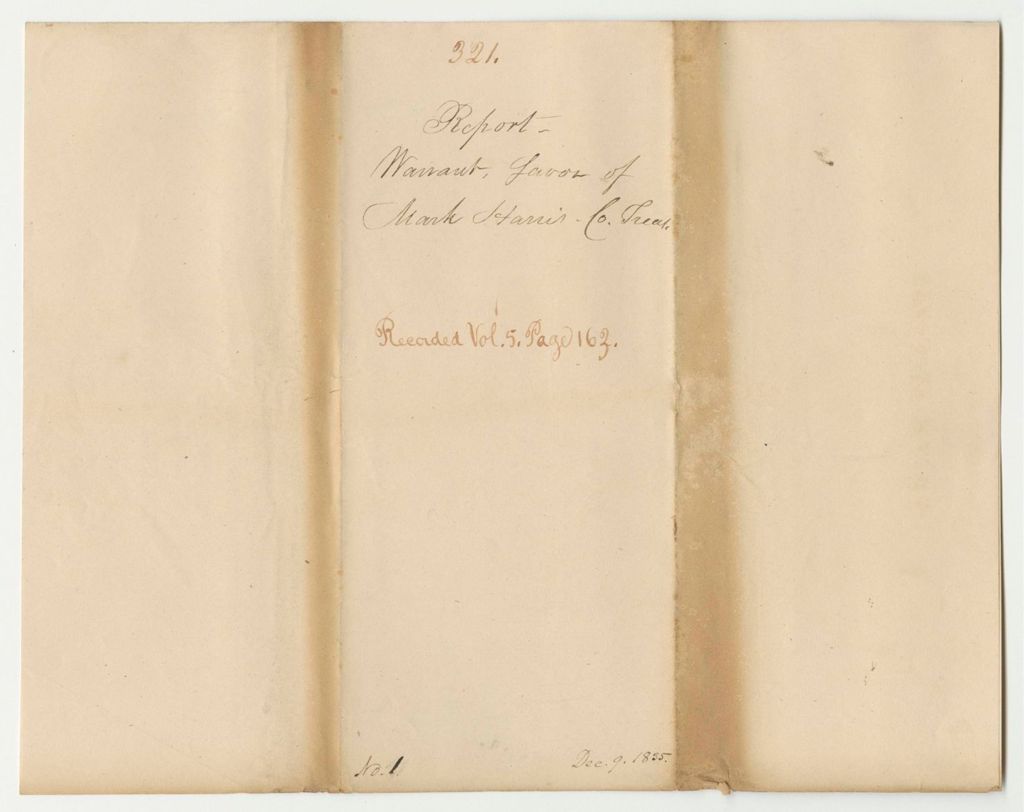 321.
Report -
Warrant, favor of
Mark Harris - Co. Treas.
Recorded Vol. 5. Page 163.
No. 1
Dec. 9. 1835.